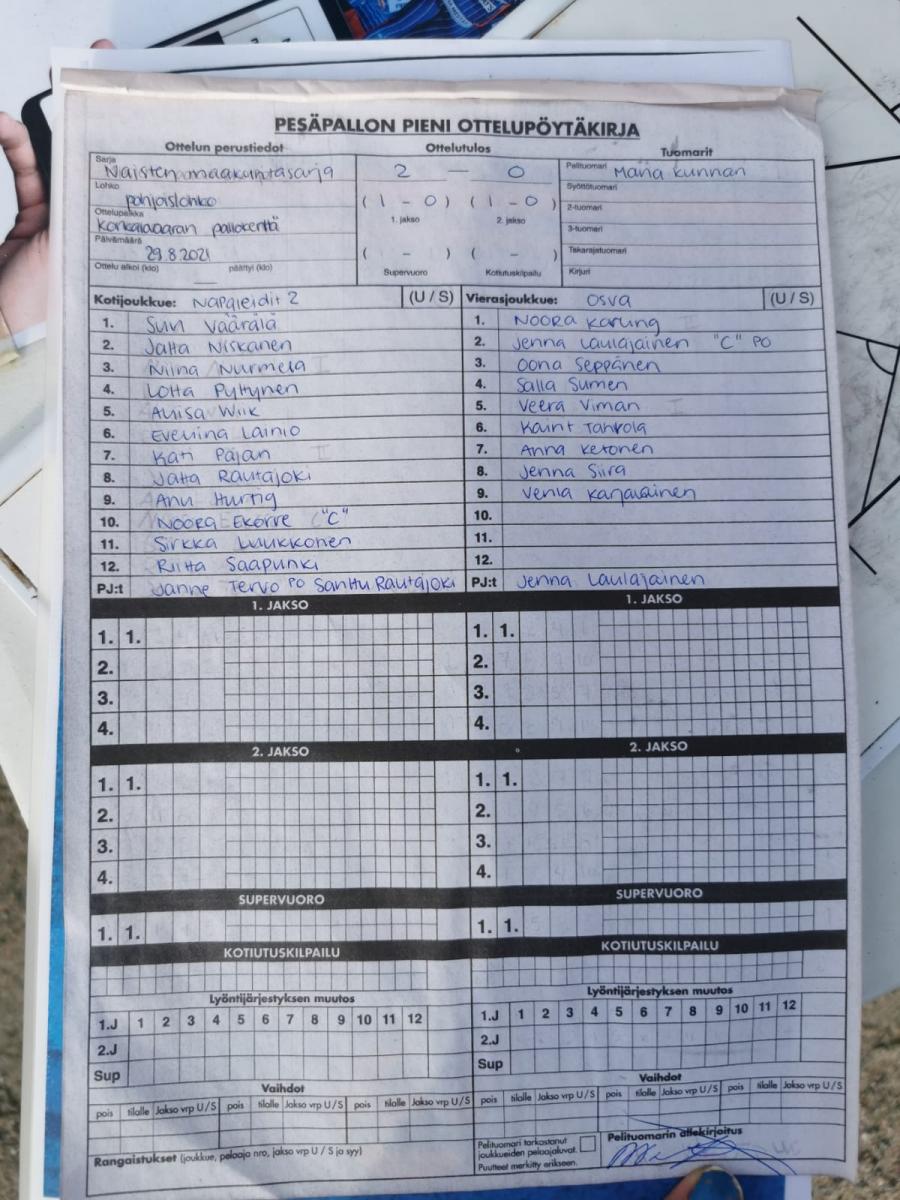 PESÄPALLON PIENI OTTELUPÖYTÄKIRJA
Ottelun perustiedot
Sarja
Naisten maakuntasarja
Lohko
pohjoislohko
Ottelupaikka
Korkalovaaran pallokenttä
Päivämäärä
29.8.2021
Ottelu alkoi (klo) päättyi (klo)
Ottelutulos
2 — 0
( 1 - 0 ) ( 1 - 0 )
1. jakso 2. jakso
( - ) ( - )
Supervuoro Kotiutuskilpailu
Tuomarit
Pelituomari Maria Kunnari
Syöttötuomari
2-tuomari
3-tuomari
Takarajatuomari
Kirjuri
Kotijoukkue: Napaleidit 2 (U / S)
1. Suvi Väärälä
2. Jatta Niskanen
3. Niina Nurmela
4. Lotta Pyhtynen
5. Wiik
6. Eveliina Lainio
7. Kati Pajari
8. Jatta Rautajoki
9. Anu Hurtig
10. Noora Ekorre "C"
11. Sirkka Luukkonen
12. Riitta Saapunki
PJ:t Janne Tervo PO Santtu Rautajoki
Vierasjoukkue: OsVa (U / S)
1. Noora Karung
2. Jenna Laulajainen "C" PO
3. Oona Seppänen
4. Salla
5. Veera Viman
6. Tahkola
7. Anna Ketonen
8. Jenna Siira
9. Venla Karjalainen
10.
11.
12.
PJ:t Jenna Laulajainen
1. JAKSO
1. 1.
2.
3.
4.
2. JAKSO
1. 1.
2.
3.
4.
SUPERVUORO
1. 1.
KOTIUTUSKILPAILU
Lyöntijärjestyksen muutos
1.J 1 2 3 4 5 6 7 8 9 10 11 12
2.J
Sup
Vaihdot
pois tilalle Jakso vrp U / S pois tilalle Jakso vrp U / S pois tilalle Jakso vrp U / S
Rangaistukset (joukkue, pelaaja nro, jakso vrp U / S ja syy)
1. JAKSO
1. 1.
2.
3.
4.
2. JAKSO
1. 1.
2.
3.
4.
SUPERVUORO
1. 1.
KOTIUTUSKILPAILU
Lyöntijärjestyksen muutos
1.J 1 2 3 4 5 6 7 8 9 10 11 12
2.J
Sup
Vaihdot
pois tilalle Jakso vrp U / S pois tilalle Jakso vrp U / S pois tilalle Jakso vrp U / S
Pelituomari tarkastanut
joukkueiden pelaajaluvat.
Puutteet merkitty erikseen.
Pelituomarin allekirjoitus